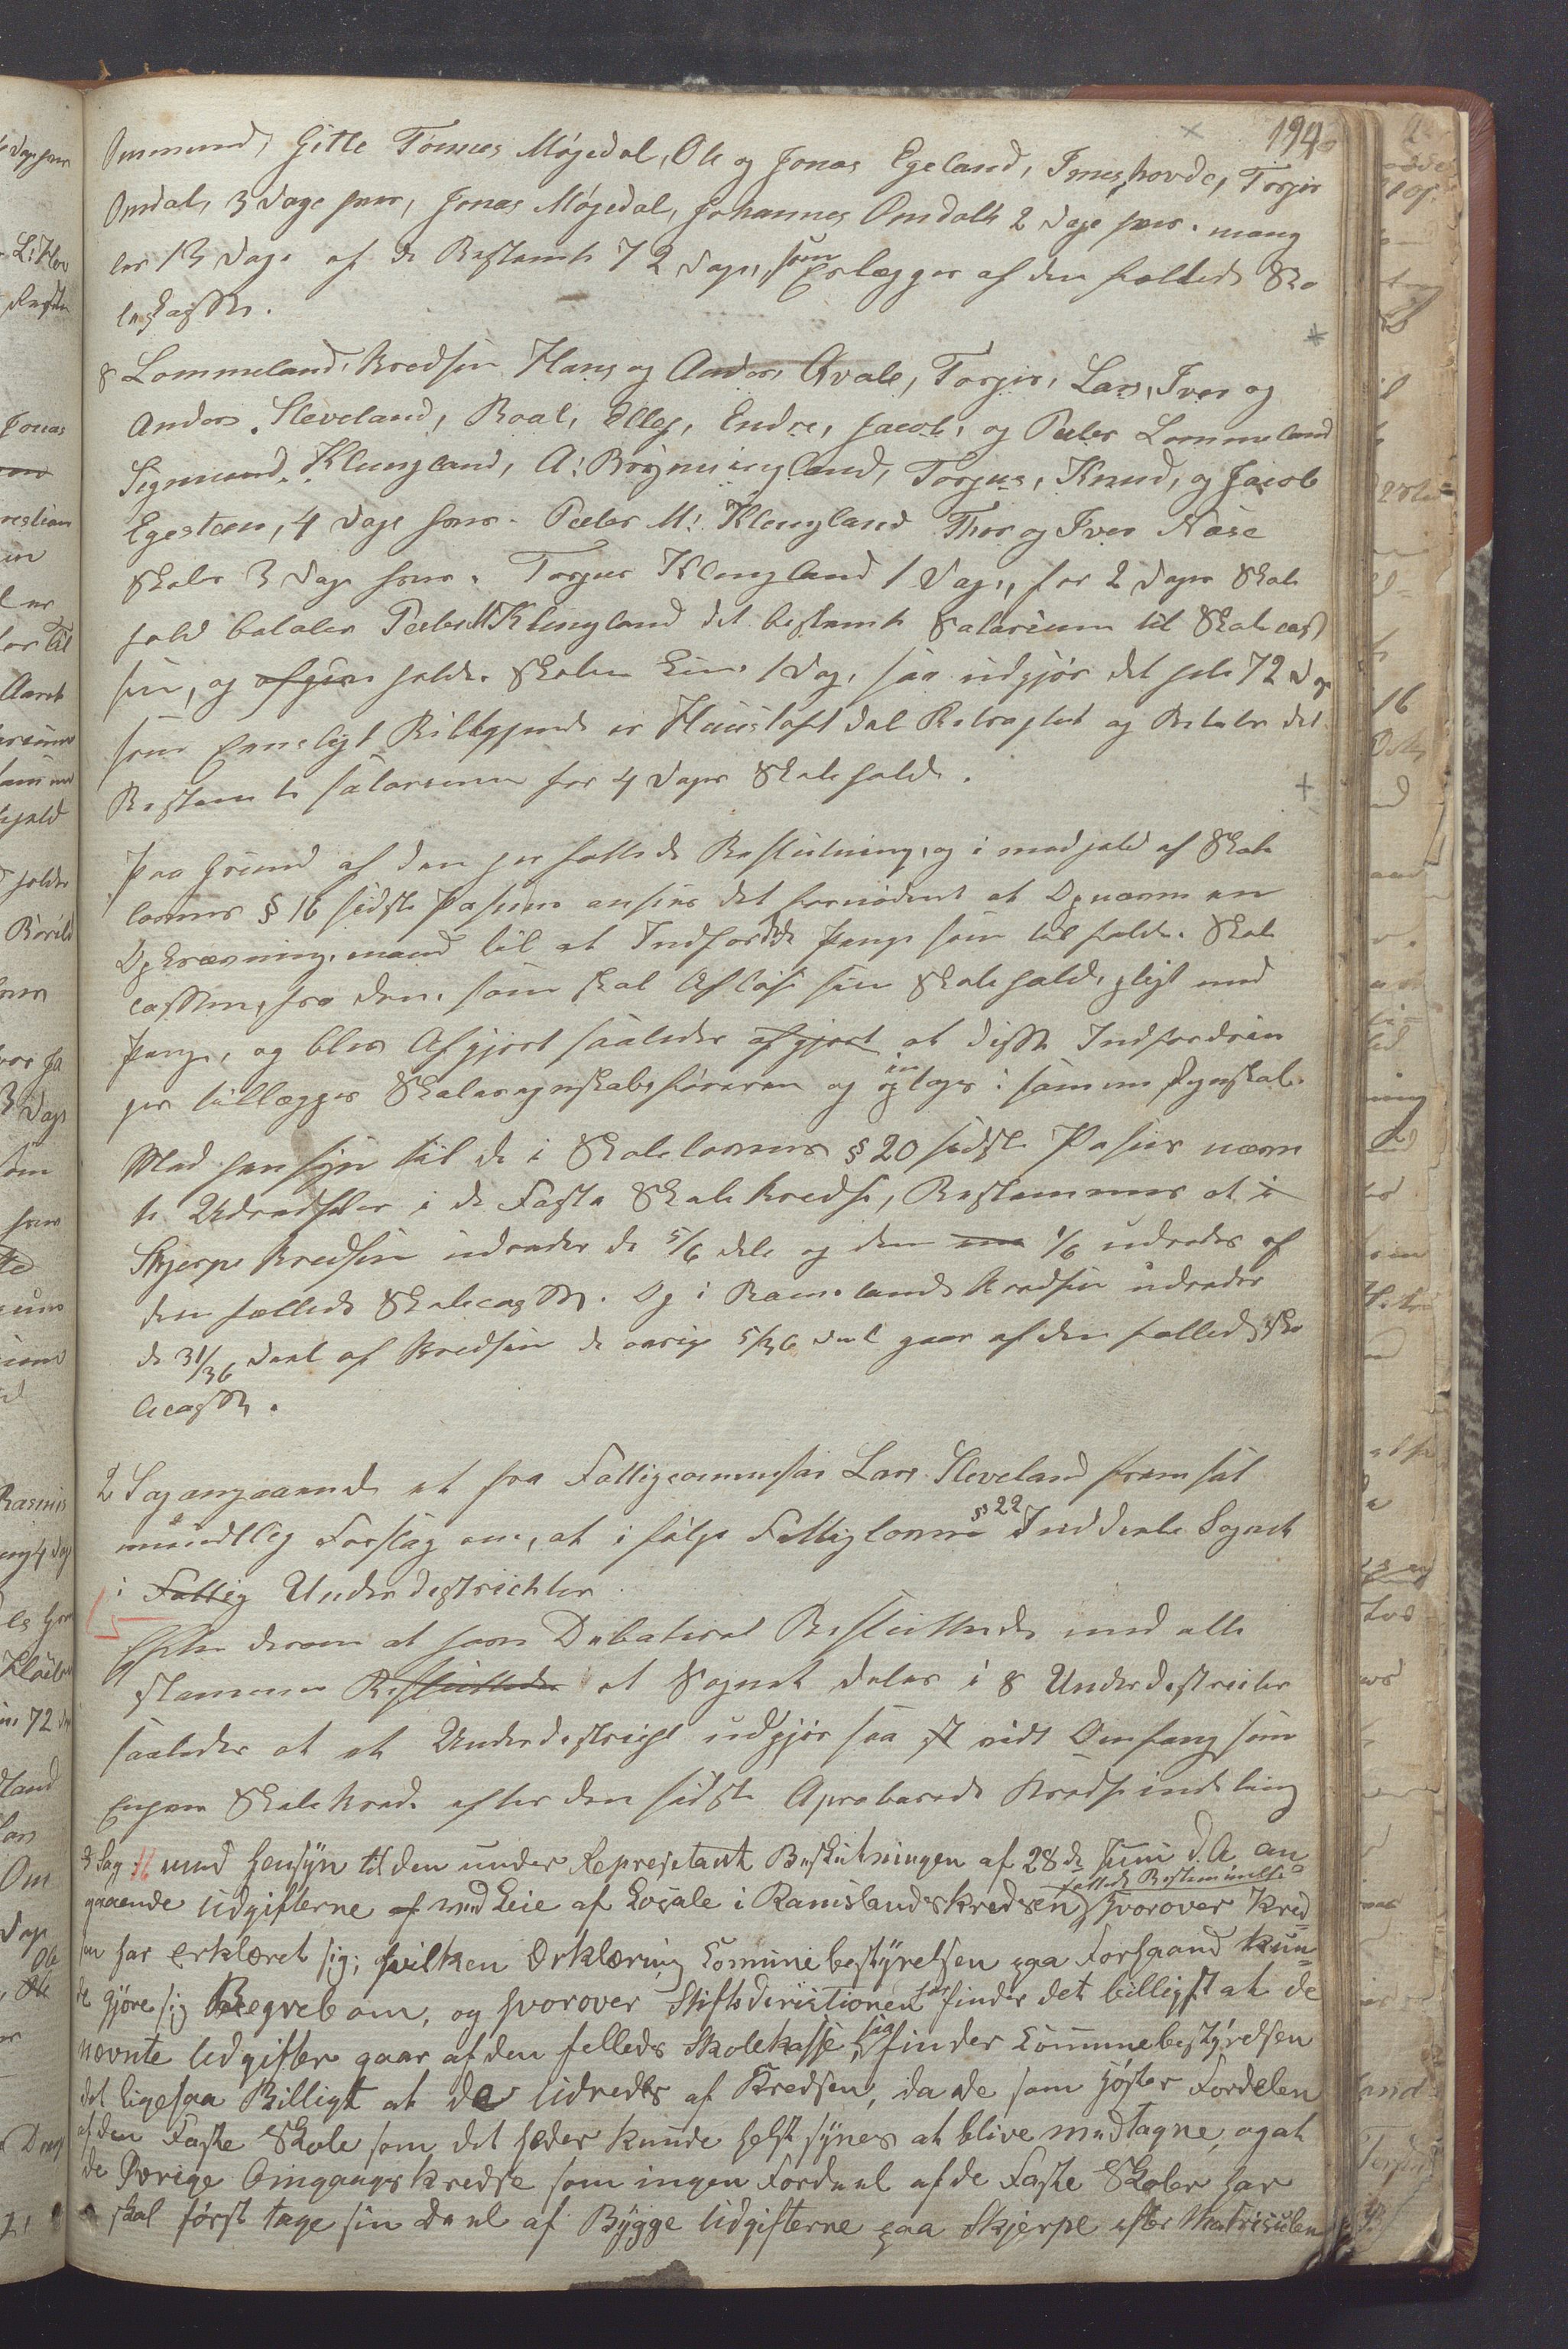 194
Ommund, Gitle Tønnes Møgedal, Ole og Jonas Egeland, Hovde, Torgir
Omdal, 3 Dage hver, Jonas Møgedal, Johannes Omdals 2 Dage hver. mang
ler 13 Dage af de Bestemte 72 Dage, som Erlægges af den fælleds Sko
lekasse.
8 Lommeland Kredsen Hans og Anders Qvale, Torgir, Lars, Iver og
Anders Sleveland, Roal, Elleg, Endre, Jacob, og Peder Lommeland
Sigmund Klungland, A: Bryningland, Torgus, Knud, og Jacob
Egesteen, 4 Dage hver. Peder M: Klungland Thor og Iver Aase
Skoler 3 Dage hver. Torgus Klungland 1 Dag, for 2 Dages Skole
hold betaler Peder M Klungland det bestemte Salarium til Skolecas
sen, og holde Skolen Een 1 Dag, saa udgjør det hele 72 Dage
som Betragtet og Betaler det
Bestemte salarium for 4 Dages Skolehold.
Paa Grund af den her fattede Beslutning, og i medhold af Skole
lovens § 16 sidste Passus ansees det fornødent at Opnævne en
Opkrævningsmand til at Indfordre Penge som tilfalde Skole
cassen, fra dem, som skal Afløse sin Skoleholdspligt med
Penge, og blev Afgjort saaledes afgjort at disse Indfordrin
ger tillægges Skoleregnskabsføreren og indtages i samme Regnskab.
Med hensyn til de i Skolelovens § 20 sidste Passus nævn
te Udredsler i de Faste Skolekredse, Bestemmes at i
Skjerpe Kredsen udreder de 5/6 dele og den 1/6 udredes af
den fælleds Skolecasse. Og i Ramslands Kredsen udreder
de 31/36 Deel af Kredsen de øvrige 5/36 deel gaar af den fælleds Sko
lecasse.
2 Sag angaaende et fra Fattigcommissær Lars Sleveland fremsat
mundtlig Forslag om, at i følge Fattigloven § 22 Inddeele Sognet
i Fattig Underdistrichter
Efter derom at have Debateret Besluttedes med alle
stemmer Besluttedes at Sognet deles i 8 Underdistricter
saaledes at et Underdistrigt udgjør saa vidt Omfang som
Enhver Skolekreds efter den sidste Aproberede Kredsinddeling
3 Sag: med Hensyn til den under Represetant Beslutningen af 28de Juni d.A an
gaaende Udgifterne af med Leie af Locale i Ramslandskredsen fattede Bestemmelse, hvorover Kred-
sen har erklæret sig; hvilken Erklæring Communebestyrelsen paa Forhaand kun-
de gjøre sig Begreb om, og hvorover Stiftsdirectionen finder det billigst at de
nævnte Udgifter gaar af den felleds Skolekasse, saa finder Communebestyrelsen
det ligesaa Billigt at de udredes af Kredsen, da de som høster Fordelen
af den Faste Skole som det heder kunde helst synes at blive medtagne, og at
de Øvrige Omgangskredse som ingen Fordeel af de Faste Skoler har
skal først tage sin Deel af Bygge Udgifterne paa Skjerpe efter Matriculen